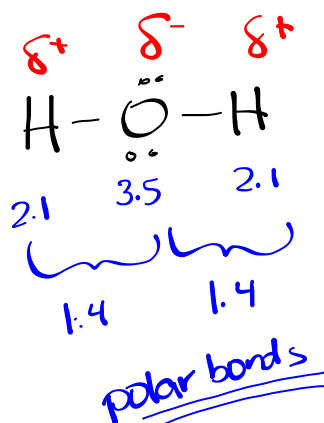 δ+ δ- δ+
H - O - H
2.1 3.5 2.1
1.4 1.4
polar bonds